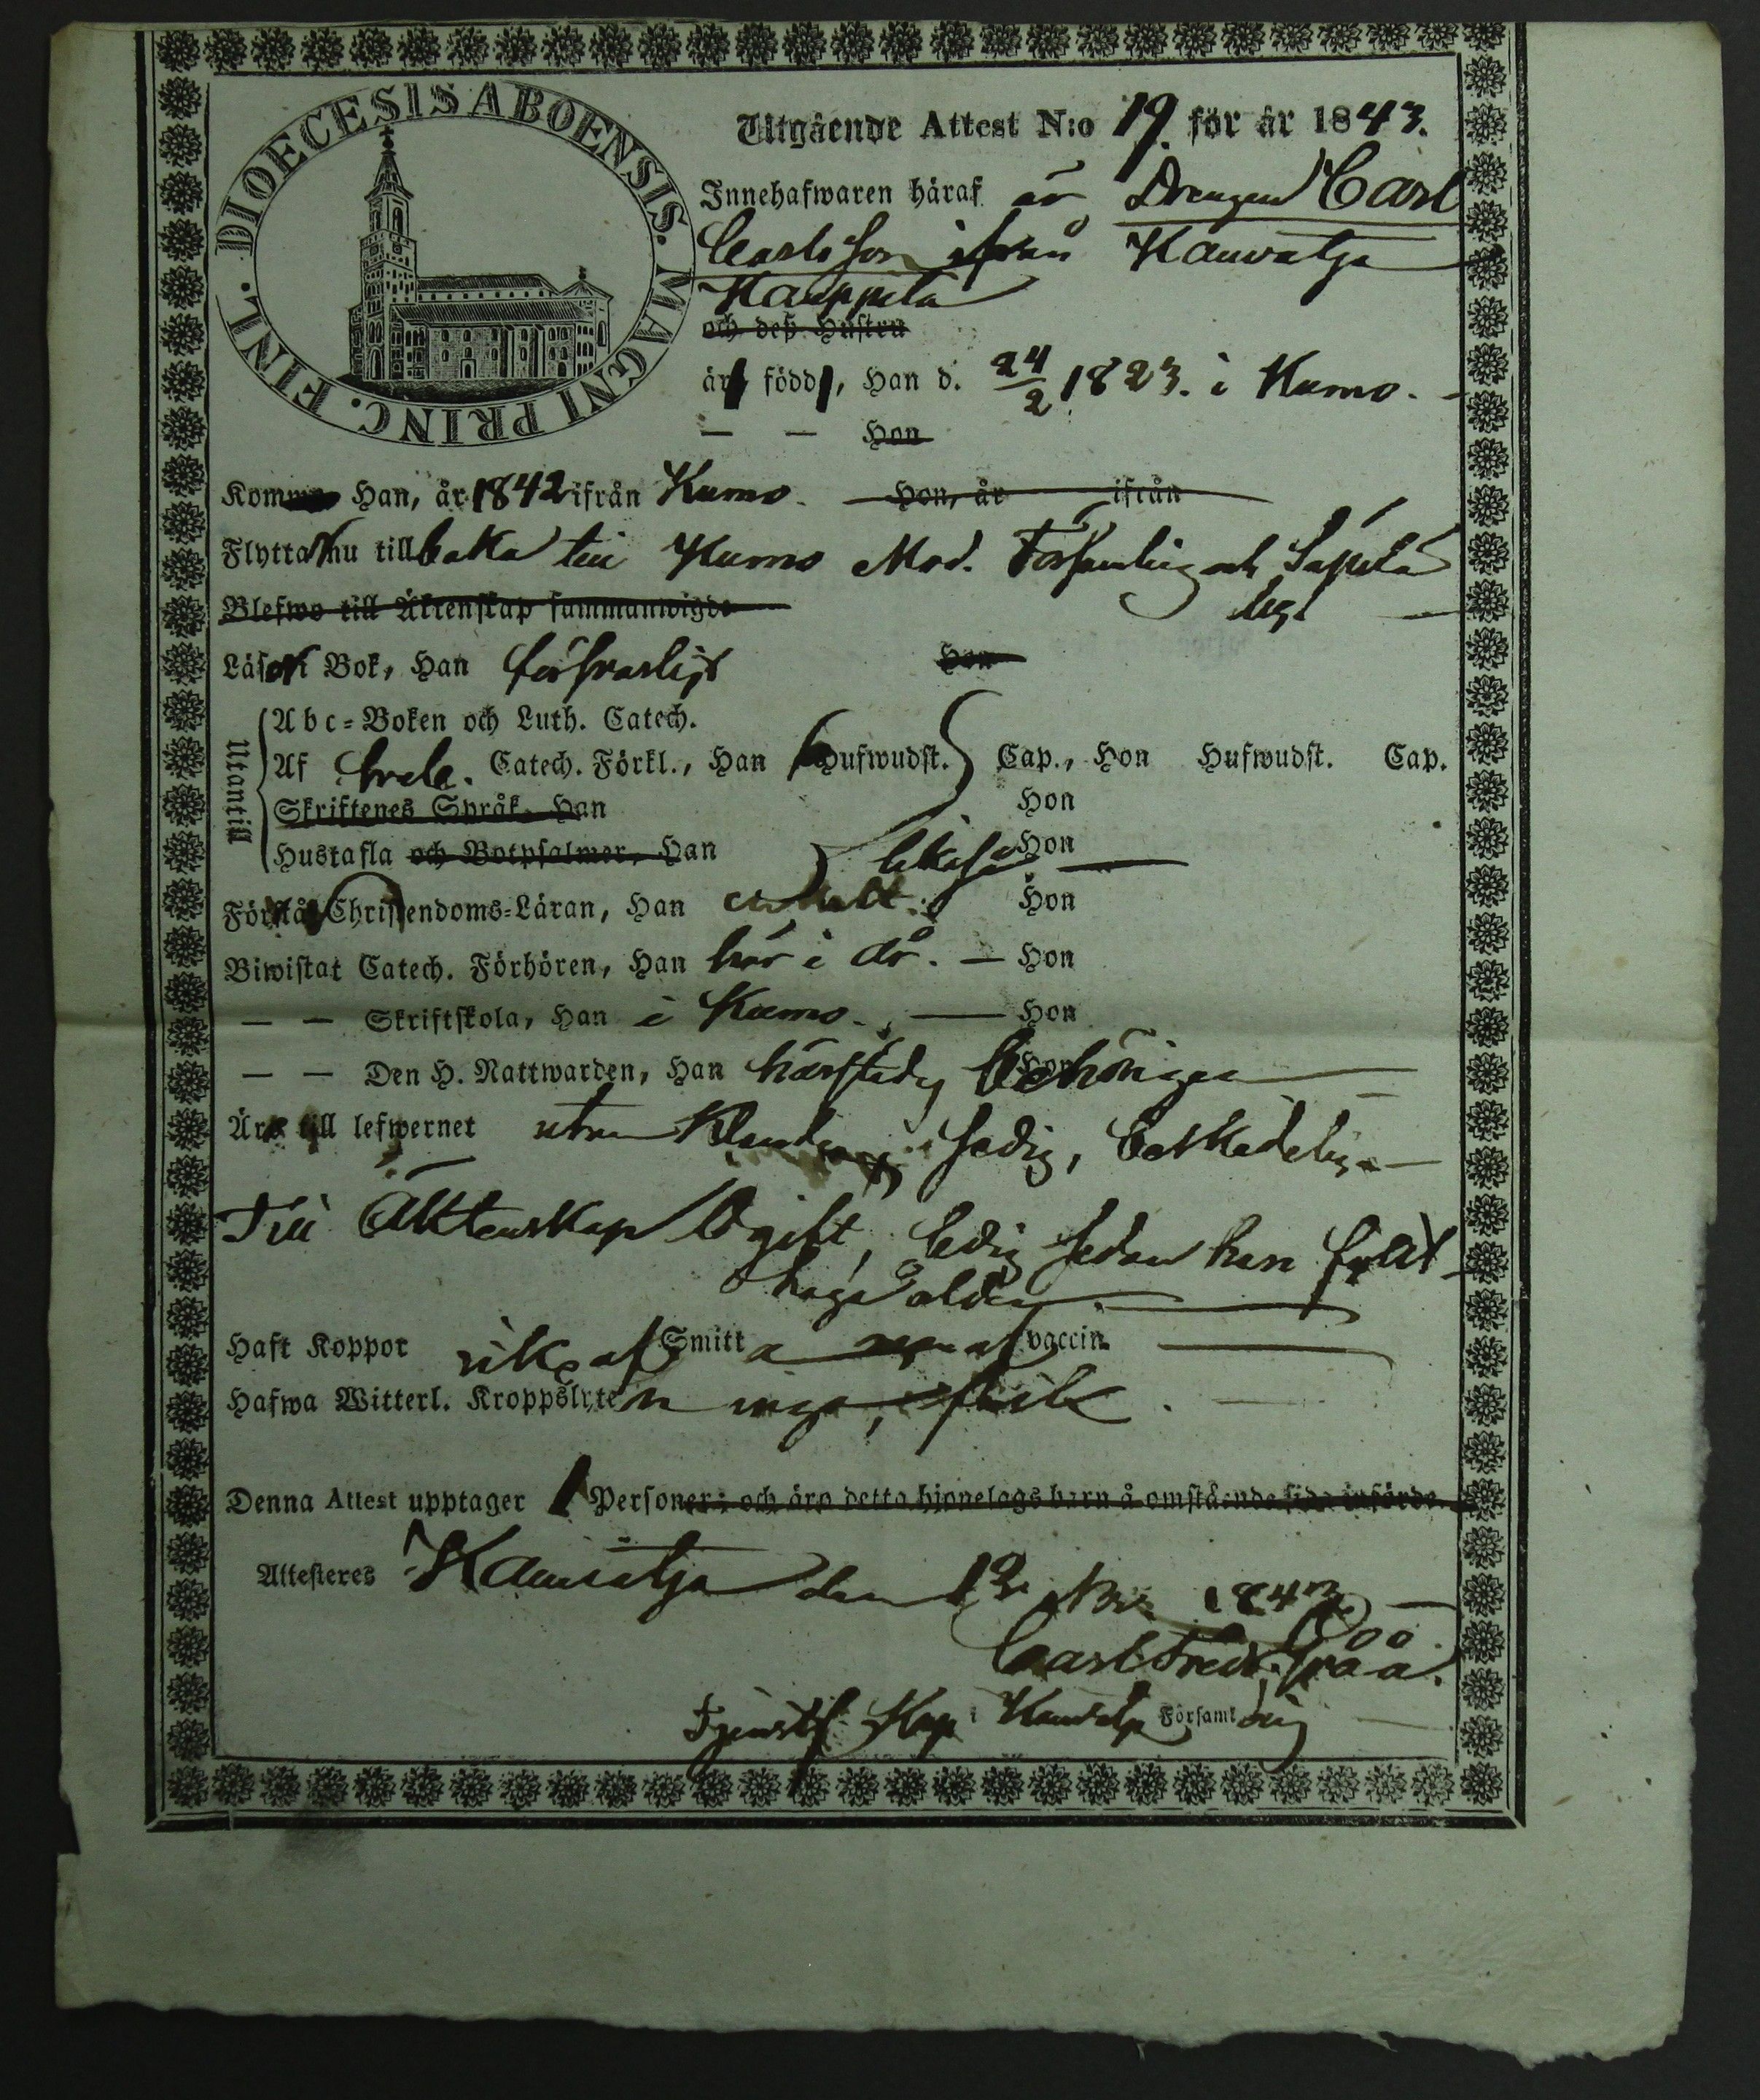 DIOECESIS ABOENSIS. MAGNI PRINC. FINL.
Utgående Attest N:o 19. för år 1843.
Innehafwaren häraf är Drengen Carl
Carlsson ifrån Kauvatsa
Kauppila
och deß Hustru
äro född, Han d. 24/2 1823. i Kumo.
— — Hon
Komm Han, år 1842 ifrån Kumo. Hon, år ifrån
Flyttar nu tillbaka till Kumo Mod. Församling och Säpilä
Blefwo till Äktenskap sammanwigde
Läser i Bok, Han försvarligt Hon
Utantill
Abc-Boken och Luth. Catech.
Af Catech. Förkl., Han Hufwudst. Cap., Hon Hufwudst. Cap.
Skriftenes Språk, Han Hon
Hustafla och Botpsalmer, Han likaså Hon
Förstår Christendoms-Läran, Han enkelt. Hon
Biwistat Catech. Förhören, Han här i år. — Hon
— — Skriftskola, Han i Kumo. — Hon
— — Den H. Nattwarden, Han härstädes behörigen Hon
Är till lefwernet utan sedig, beskedelig
Till Äktenskap Ogift, ledig sedan han fyllt
laga åldern.
Haft Koppor Smitt vaccin.
Hafwa Witterl. Kroppslyten inga,
Denna Attest upptager 1 Personer; och äro detta hjonelags barn å omstående sida införde.
Attesteres Kauvatsa den 12 1843
Carl Fredr. Gråå.
Kap i Kauvatsa Församling